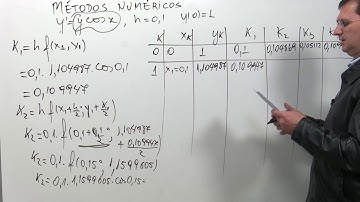 MÉTODOS NUMÉRICOS
y' = y cos x, h=0,1 y(0)=1
K₁ = h f(x₁, y₁)
= 0,1 . 1,104987 . cos 0,1
= 0,109947
K₂ = h f(x₁ + h/2, y₁ + K₁/2)
K₂ = 0,1 . f(0,1 + 0,1/2 ; 1,104987 + 0,109947/2)
K₂ = 0,1 . f(0,15 ; 1,1599605)
K₂ = 0,1 . 1,1599605 . cos 0,15 =
K xₖ yₖ K₁ K₂ K₃
0 0 1 0,1 0,104869 0,105112
1 x₁=0,1 1,104987 0,109947